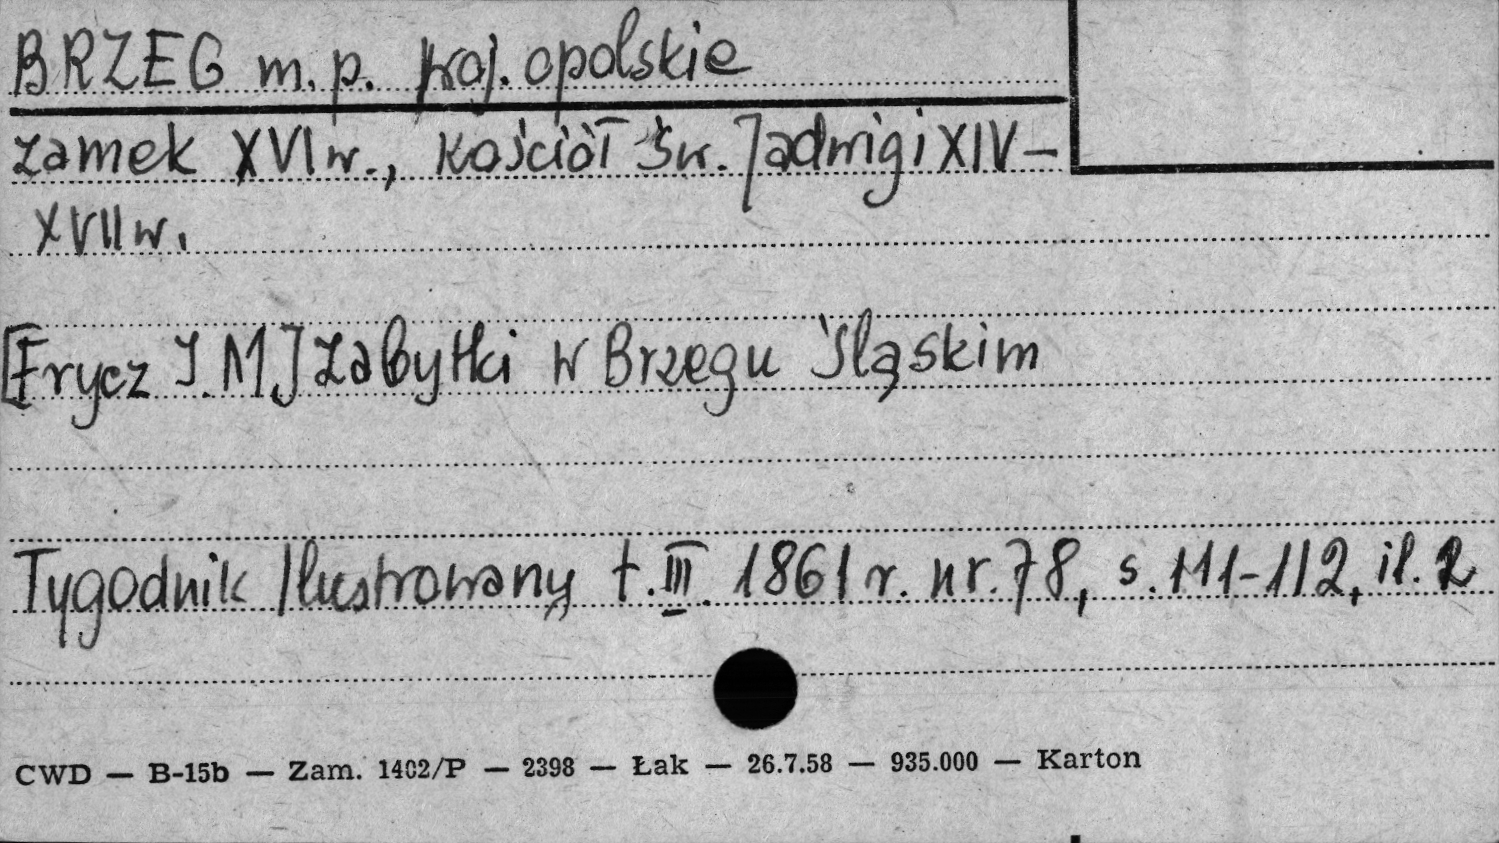 BRZEG m.p. woj. opolskie
zamek XVI w., kościół św. Jadwigi XIV –
XVII w.
[Frycz J. M.] Zabytki w Brzegu Śląskim
Tygodnik Ilustrowany t. III. 1861 r. nr. 78, s. 111-112, il. 2
CWD — B-15b — Zam. 1402/P — 2398 — Łak — 26.7.58 — 935.000 — Karton